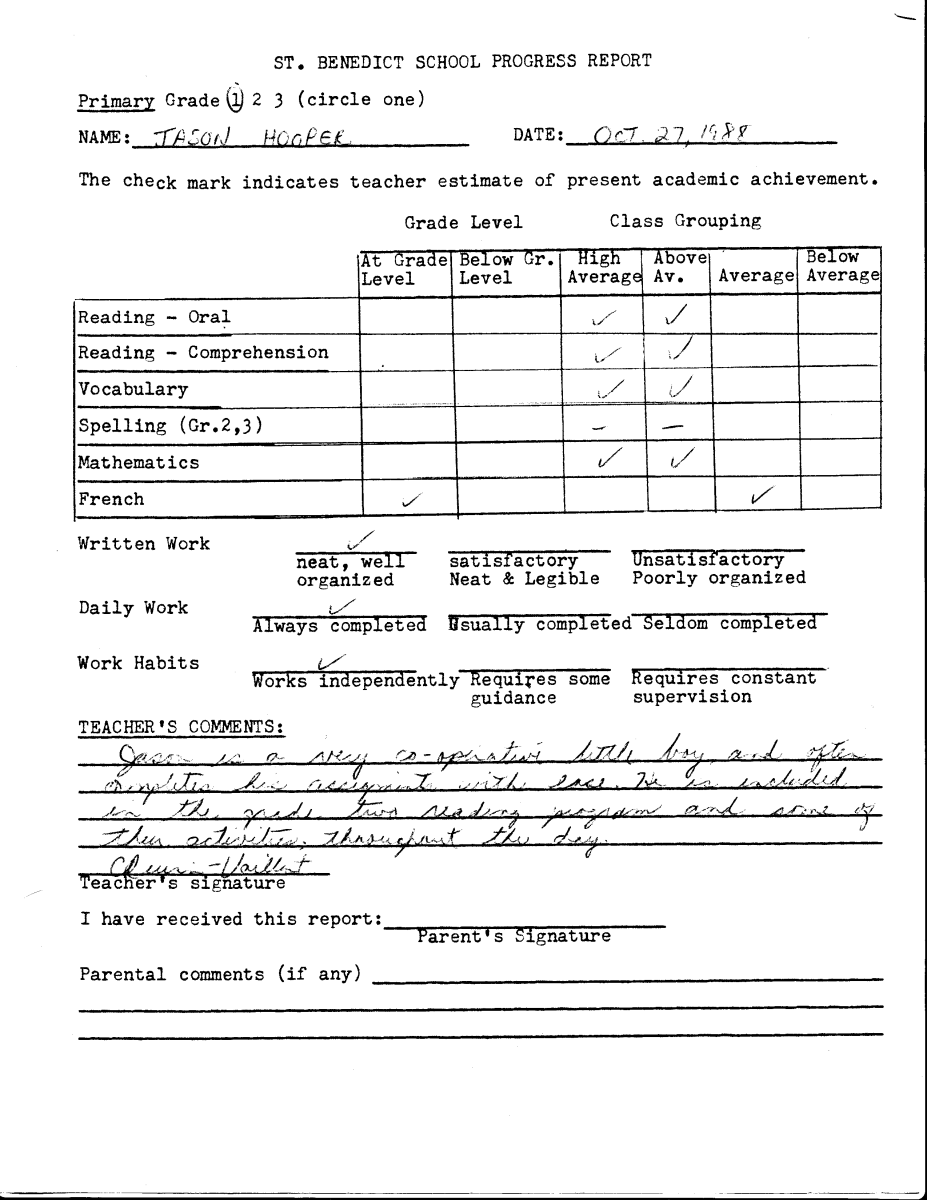 ST. BENEDICT SCHOOL PROGRESS REPORT
Primary Grade 1 2 3 (circle one)
NAME: JASON HOOPER DATE: OCT. 27, 1988
The check mark indicates teacher estimate of present academic achievement.
Grade Level Class Grouping
At Grade Below Gr. High Above Below
Level Level Average Av. Average Average
Reading - Oral ✓ ✓
Reading - Comprehension ✓ ✓
Vocabulary ✓ ✓
Spelling (Gr.2,3) - -
Mathematics ✓ ✓
French ✓ ✓
Written Work ✓
neat, well satisfactory Unsatisfactory
organized Neat & Legible Poorly organized
Daily Work ✓
Always completed Usually completed Seldom completed
Work Habits ✓
Works independently Requires some Requires constant
guidance supervision
TEACHER'S COMMENTS:
Jason is a very co-operative little boy and often
completes his assignments with ease. He is included
in the grade two reading program and some of
their activities, throughout the day.
Teacher's signature
I have received this report:
Parent's Signature
Parental comments (if any)